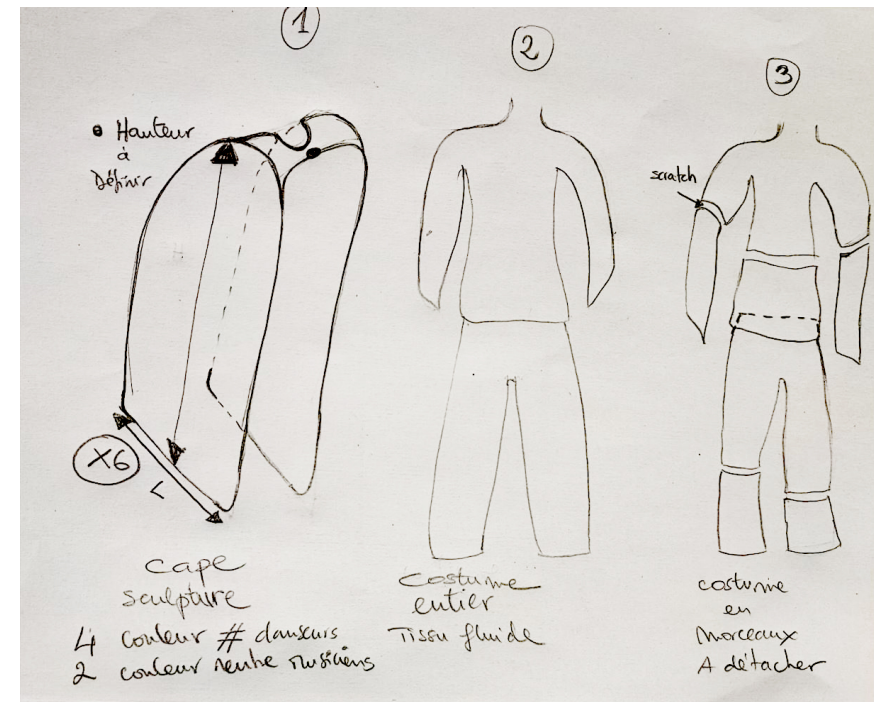 1
• Hauteur
à
Définir
X6
L
cape
sculpture
4 couleur # danseurs
2 couleur neutre musiciens
2
Costume
entier
Tissu fluide
3
scratch
costume
en
morceaux
A détacher